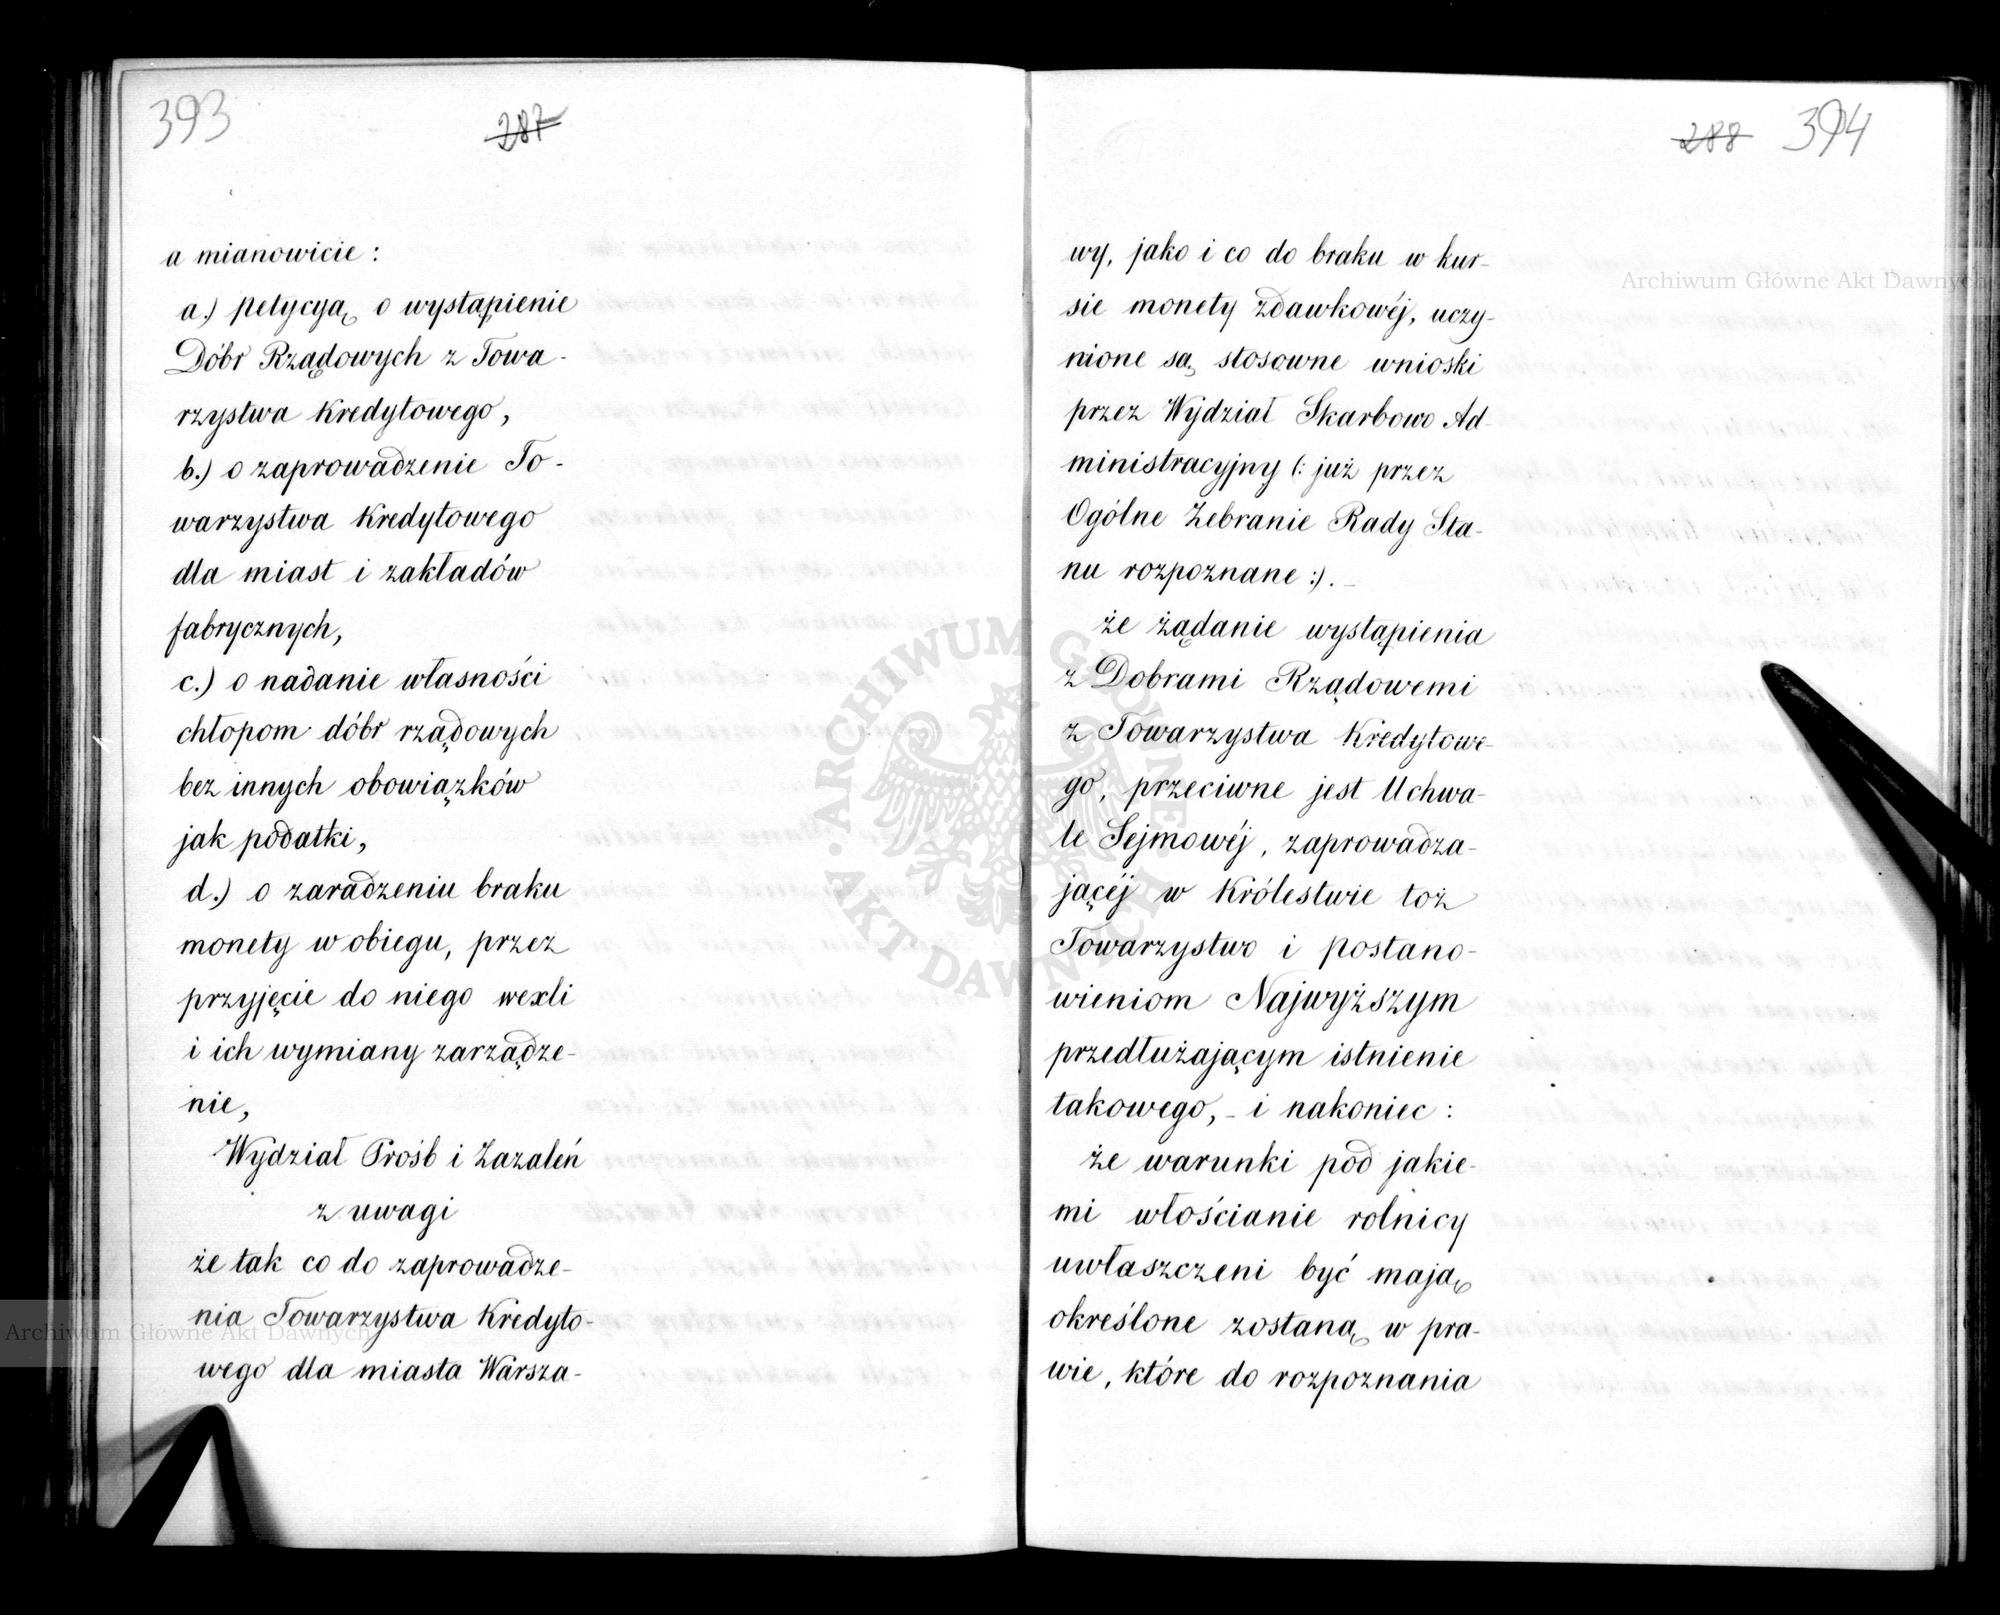 393
287
a mianowicie :
a.) petycyą o wystąpienie
Dóbr Rządowych z Towa-
rzystwa Kredytowego,
b.) o zaprowadzenie To-
warzystwa Kredytowego
dla miast i zakładów
fabrycznych,
c.) o nadanie własności
chłopom dóbr rządowych
bez innych obowiązków
jak podatki,
d.) o zaradzeniu braku
monety w obiegu, przez
przyjęcie do niego wexli
i ich wymiany zarządze-
nie,
Wydział Prośb i Zazaleń
z uwagi
że tak co do zaprowadze-
nia Towarzystwa Kredyto-
wego dla miasta Warsza-
288 394
wy, jako i co do braku w kur-
sie monety zdawkowéj, uczy-
nione są stosowne wnioski
przez Wydział Skarbowo Ad-
ministracyjny (: już przez
Ogólne Zebranie Rady Sta-
nu rozpoznane :). –
że żądanie wystąpienia
z Dobrami Rządowemi
z Towarzystwa Kredytowe-
go, przeciwne jest Uchwa-
le Sejmowéj, zaprowadza-
jącéj w Królestwie toż
Towarzystwo i postano-
wieniom Najwyższym
przedłużającym istnienie
takowego, – i nakoniec :
że warunki pod jakie-
mi włościanie rolnicy
uwłaszczeni być mają
określone zostaną w pra-
wie, które do rozpoznania
Archiwum Główne Akt Dawnych
Archiwum Główne Akt Dawnych
ARCHIWUM GŁÓWNE AKT DAWNYCH